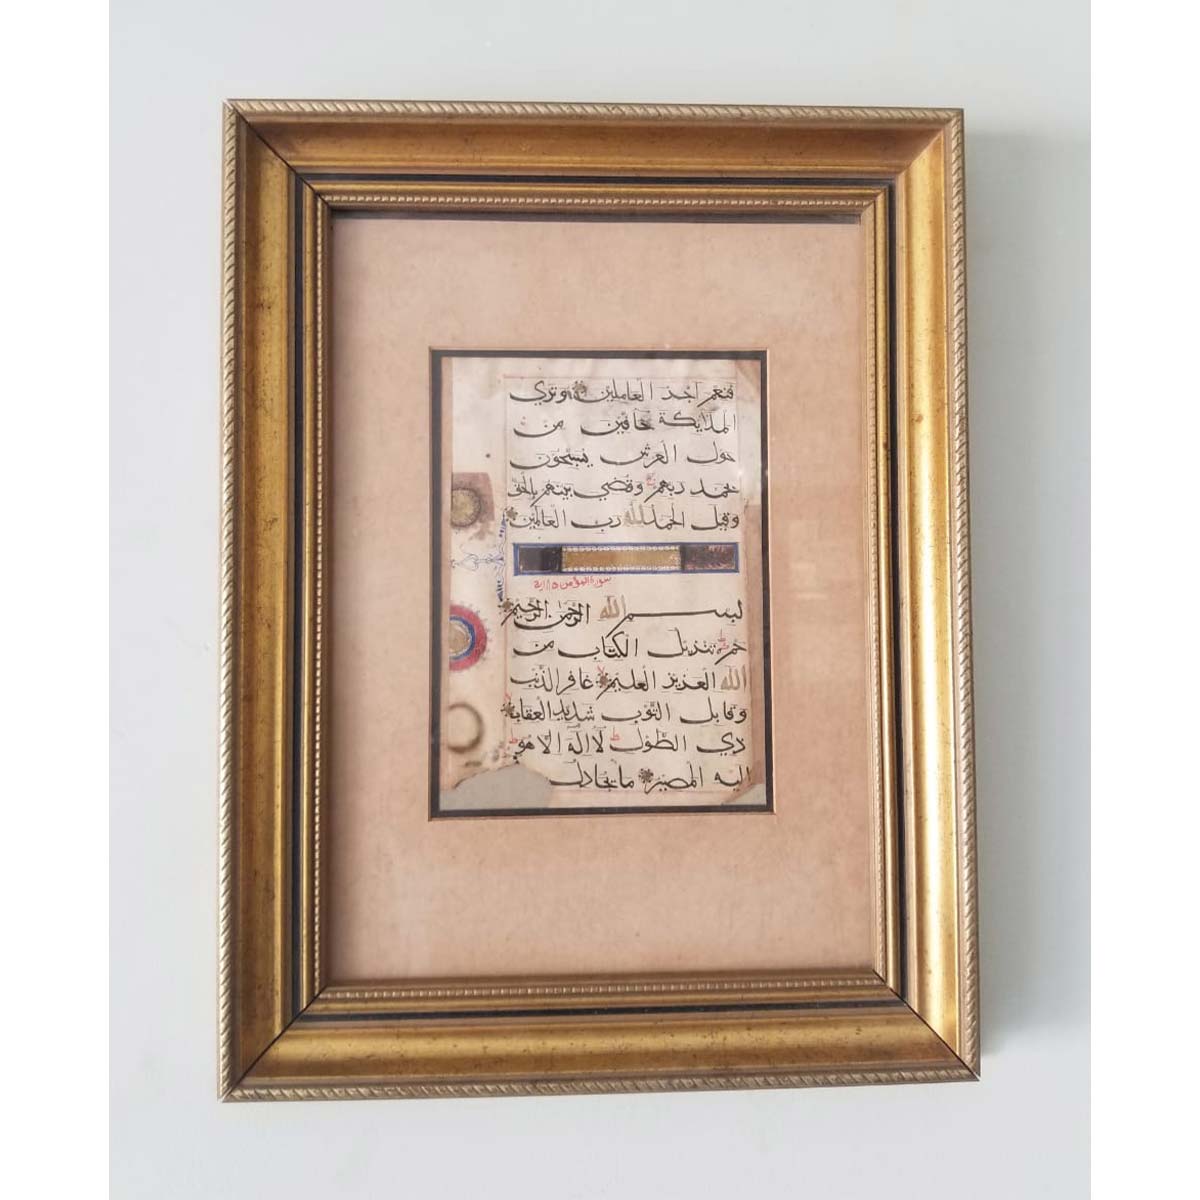 فنعم اجر العاملين وتري
الملايكة حافين من
حول العرش يسبحون
بحمد ربهم وقضي بينهم بالحق
وقيل الحمد لله رب العالمين
سورة المؤمن ٨٥ اية
بسم الله الرحمن الرحيم
حم تنزيل الكتاب من
الله العزيز العليم غافر الذنب
وقابل التوب شديد العقاب
ذي الطول لا اله الا هو
اليه المصير ما يجادل